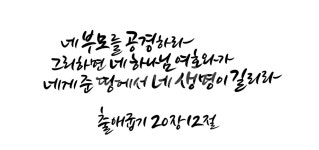 네 부모를 공경하라
그리하면 네 하나님 여호와가
네게 준 땅에서 네 생명이 길리라
출애굽기 20장 12절